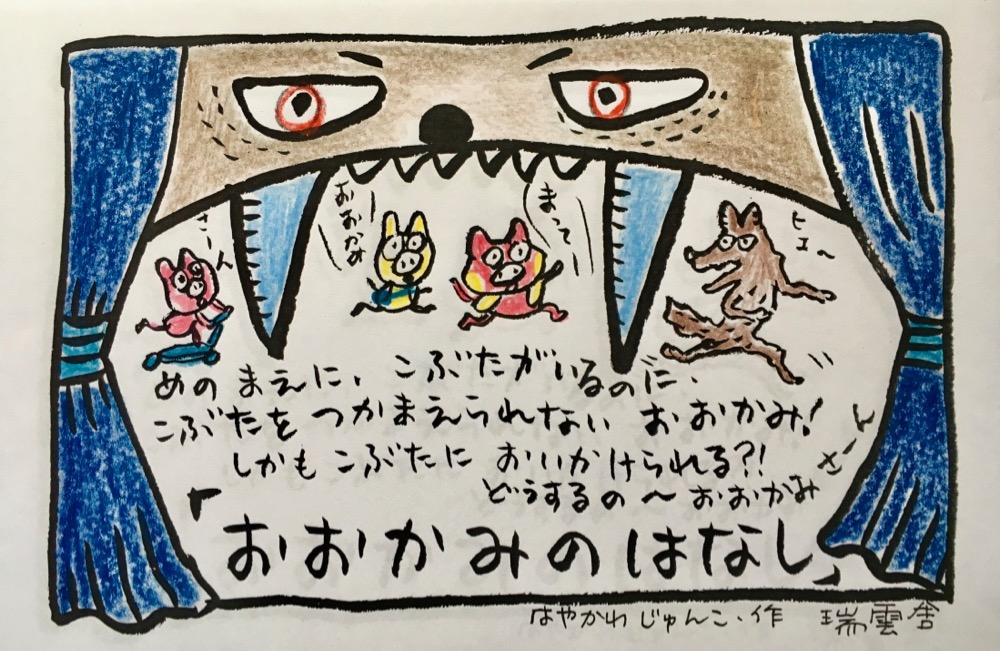 さーん
おおかみ
まって
ヒエ〜
めのまえに、こぶたがいるのに、
こぶたをつかまえられないおおかみ!
しかもこぶたにおいかけられる?!
どうするの〜おおかみさーん
「おおかみのはなし」
はやかわじゅんこ・作 瑞雲舎